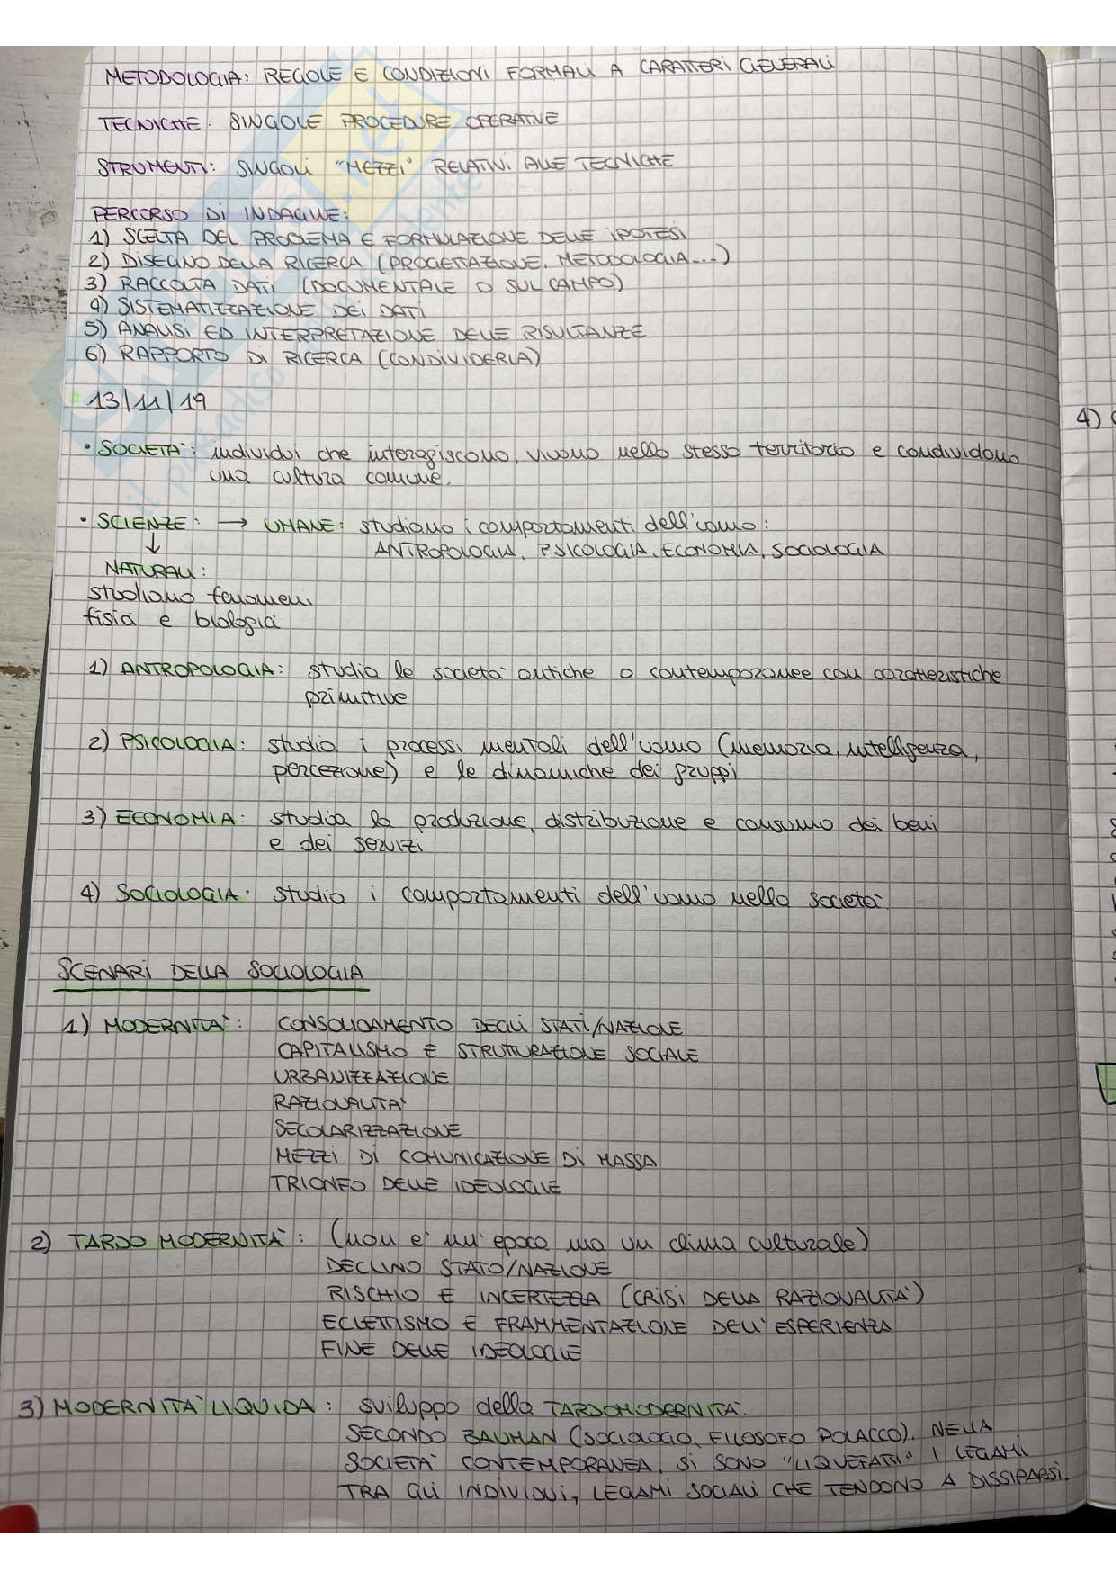 METODOLOGIA: REGOLE E CONDIZIONI FORMALI A CARATTERI GENERALI
TECNICHE: SINGOLE PROCEDURE OPERATIVE
STRUMENTI: SINGOLI "MEZZI" RELATIVI ALLE TECNICHE
PERCORSO DI INDAGINE:
1) SCELTA DEL PROBLEMA E FORMULAZIONE DELLE IPOTESI
2) DISEGNO DELLA RICERCA (PROGETTAZIONE, METODOLOGIA...)
3) RACCOLTA DATI (DOCUMENTALE O SUL CAMPO)
4) SISTEMATIZZAZIONE DEI DATI
5) ANALISI ED INTERPRETAZIONE DELLE RISULTANZE
6) RAPPORTO DI RICERCA (CONDIVIDERLA)
13/11/19
4)
• SOCIETA': individui che interagiscono, vivono nello stesso territorio e condividono
una cultura comune.
• SCIENZE: → UMANE: studiano i comportamenti dell'uomo:
↓ ANTROPOLOGIA, PSICOLOGIA, ECONOMIA, SOCIOLOGIA
NATURALI:
studiano fenomeni
fisia e biologia
1) ANTROPOLOGIA: studia le societa' antiche o contemporanee con caratteristiche
primitive
2) PSICOLOGIA: studia i processi mentali dell'uomo (memoria, intelligenza,
percezione) e le dinamiche dei gruppi
3) ECONOMIA: studia la produzione, distribuzione e consumo dei beni
e dei servizi
4) SOCIOLOGIA: studia i comportamenti dell'uomo nella societa'.
SCENARI DELLA SOCIOLOGIA
1) MODERNITA': CONSOLIDAMENTO DEGLI STATI/NAZIONE
CAPITALISMO E STRUTTURAZIONE SOCIALE
URBANIZZAZIONE
RAZIONALITA'
SECOLARIZZAZIONE
MEZZI DI COMUNICAZIONE DI MASSA
TRIONFO DELLE IDEOLOGIE
2) TARDO MODERNITA': (non e' un' epoca ma un clima culturale)
DECLINO STATO/NAZIONE
RISCHIO E INCERTEZZA (CRISI DELLA RAZIONALITA')
ECLETTISMO E FRAMMENTAZIONE DELL'ESPERIENZA
FINE DELLE IDEOLOGIE
3) MODERNITA' LIQUIDA: sviluppo della TARDOMODERNITA'.
SECONDO BAUMAN (SOCIOLOGO, FILOSOFO POLACCO), NELLA
SOCIETA' CONTEMPORANEA, SI SONO "LIQUEFATTI" I LEGAMI
TRA GLI INDIVIDUI, LEGAMI SOCIALI CHE TENDONO A DISSIPARSI.